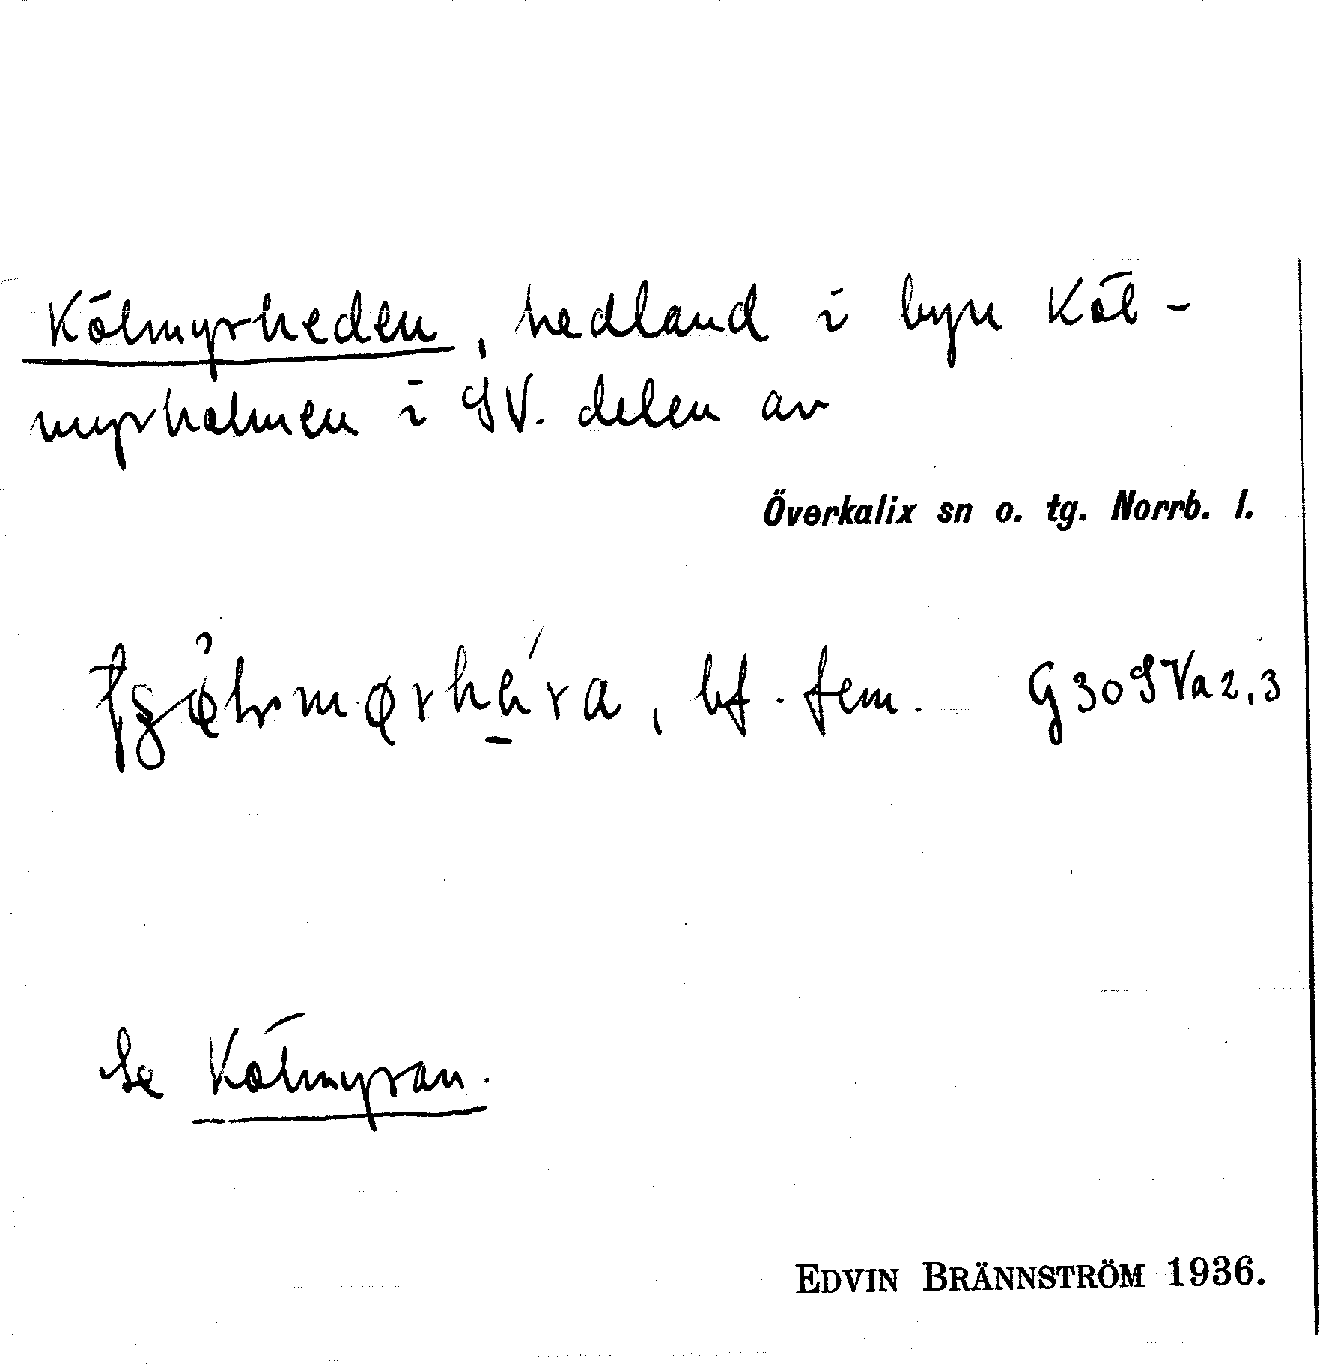 Kölmyrheden, hedland i byn Köl-
myrholmen i SV. delen av
Överkalix sn o. tg. Norrb. l.
bf. fem. G 30 SVa 2,3
Se Kölmyran.
EDVIN BRÄNNSTRÖM 1936.